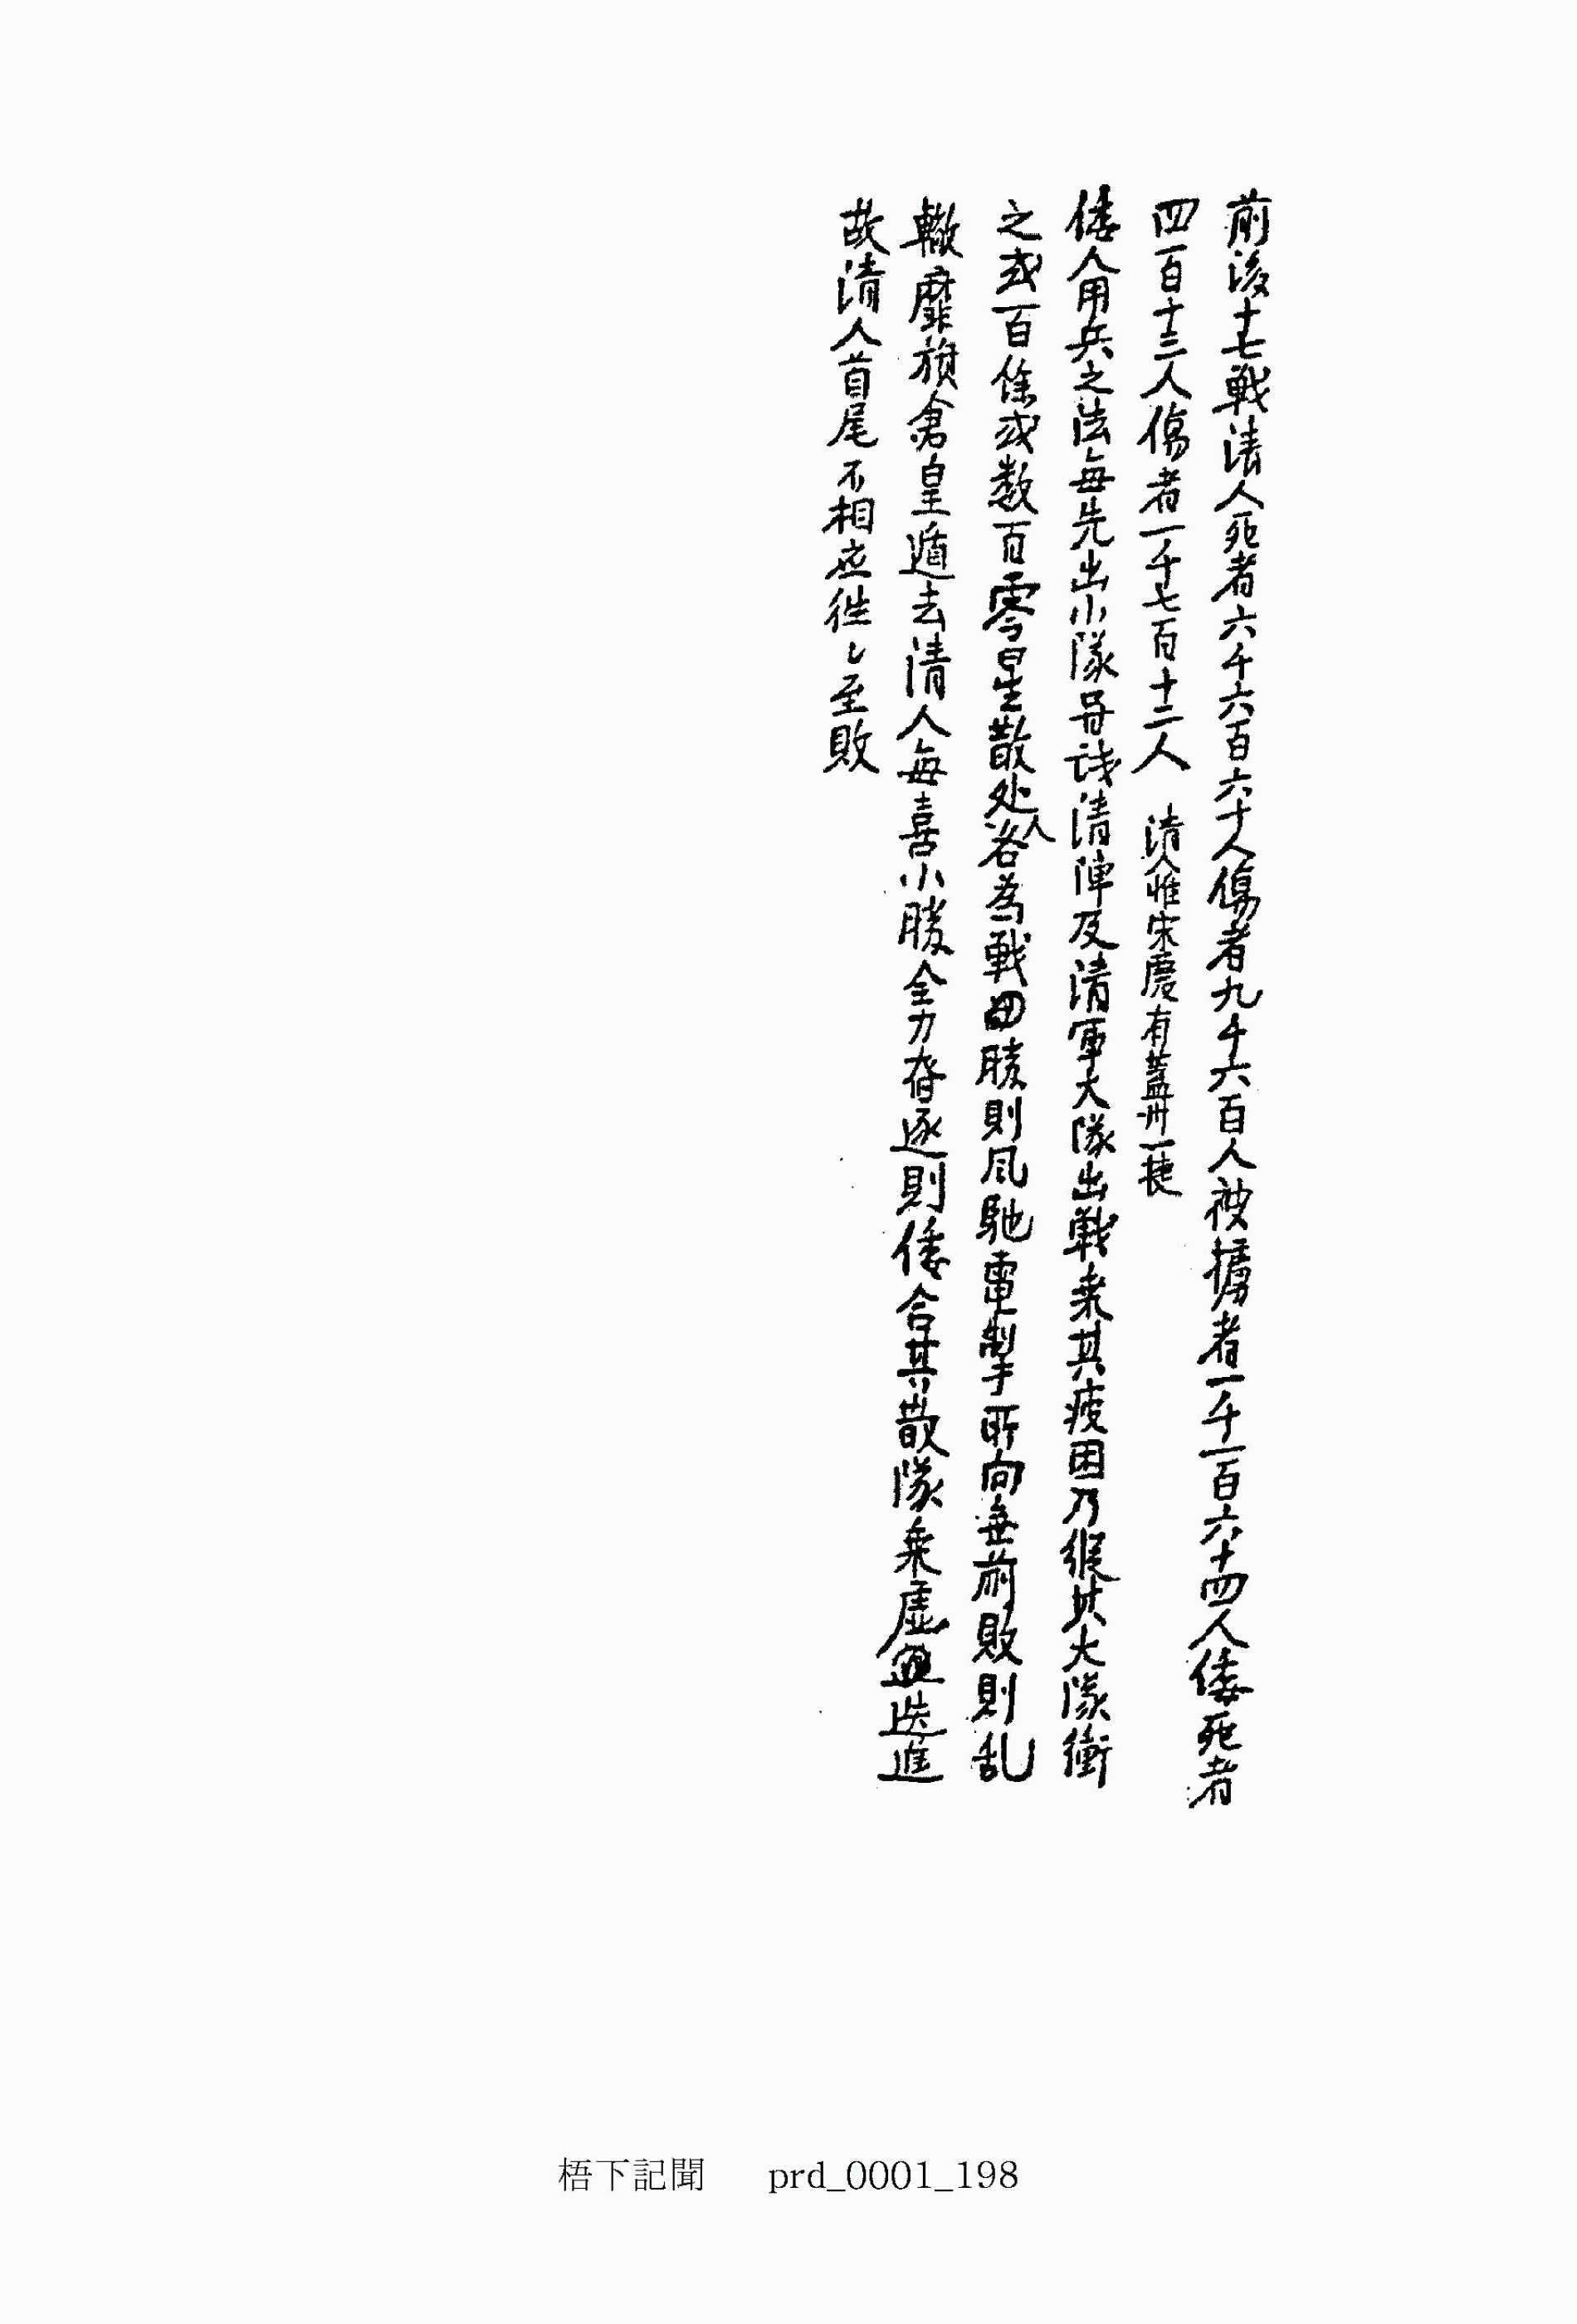 前後十七戰清人死者六千六百六十人傷者九千六百人被擄者一千一百六十四人倭死者
四百十三人傷者一千七百十二人 清人惟宋慶有蓋州一捷
倭人用兵之法每先出小隊㝵誘清陣及清軍大隊出戰乘其疲困乃縱其大隊衝
之或百餘或数百零星散处人各為戰勝則風馳電掣所向無前敗則乱
轍靡旗倉皇遁去清人每喜小勝全力奔逐則倭合其散隊乘虛迭進
故清人首尾不相应徃〻至敗
梧下記聞 prd_0001_198